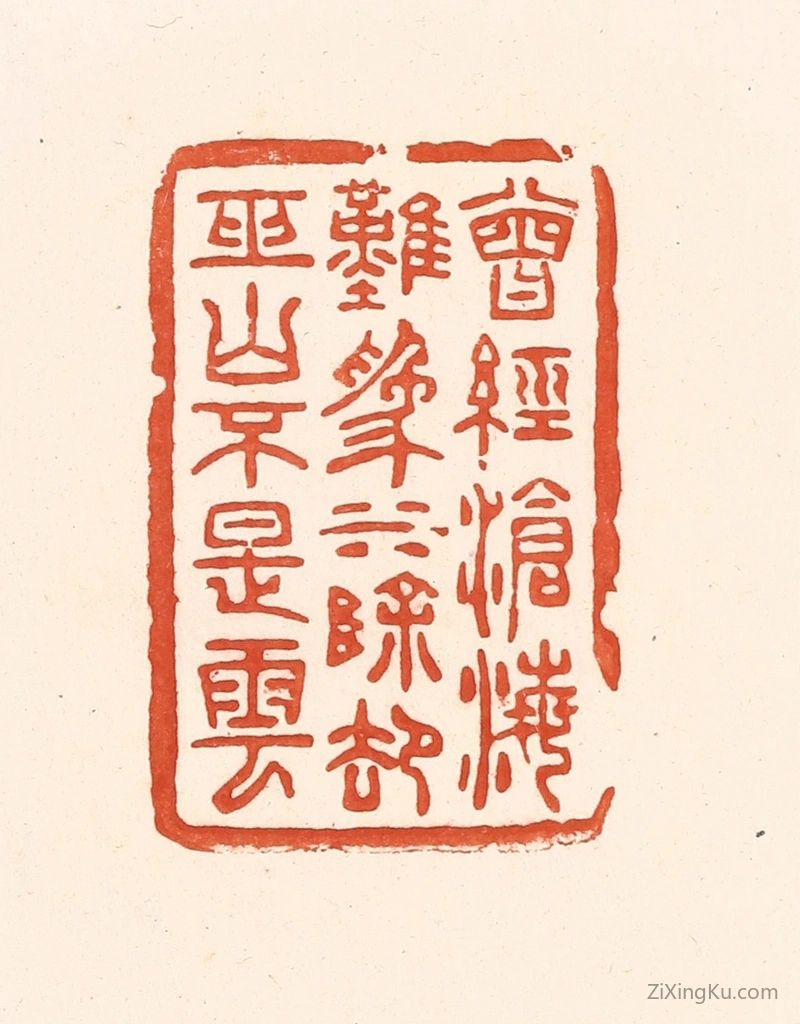 曾經滄海
難為水除卻
巫山不是雲
ZiXingKu.com